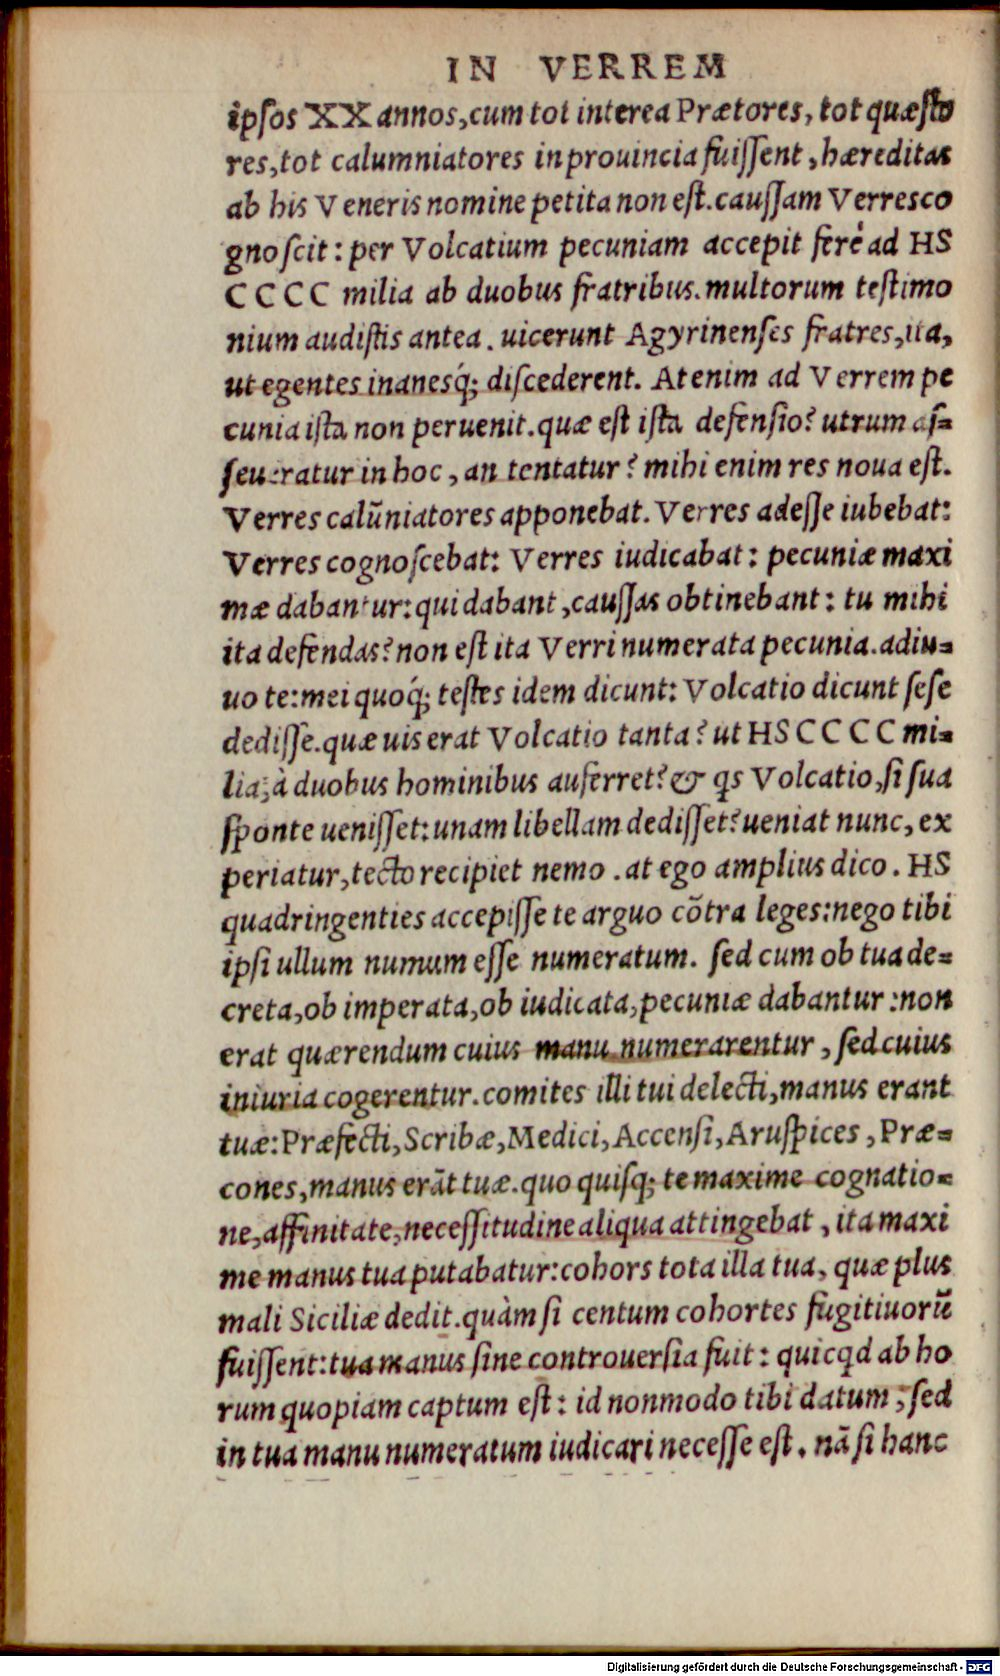 IN VERREM
ipſos XX annos, cum tot interea Prætores, tot quæſto
res, tot calumniatores in prouincia fuiſſent, hæreditas
ab his Veneris nomine petita non eſt. cauſſam Verres co
gnoſcit: per Volcatium pecuniam accepit ferè ad HS
CCCC milia ab duobus fratribus. multorum teſtimo
nium audiſtis antea. uicerunt Agyrinenſes fratres, ita,
ut egentes inanesq́; diſcederent. At enim ad Verrem pe
cunia iſta non peruenit. quæ eſt iſta defenſio? utrum aſ=
ſeueratur in hoc, an tentatur? mihi enim res noua eſt.
Verres calūniatores apponebat. Verres adeſſe iubebat:
Verres cognoſcebat: Verres iudicabat: pecuniæ maxi
mæ dabantur: qui dabant, cauſſas obtinebant: tu mihi
ita defendas? non eſt ita Verri numerata pecunia. adiu=
uo te: mei quoq́; teſtes idem dicunt: Volcatio dicunt ſeſe
dediſſe. quæ uis erat Volcatio tanta? ut HS CCCC mi=
lia, à duobus hominibus auferret? & qs Volcatio, ſi ſua
ſponte ueniſſet: unam libellam dediſſet? ueniat nunc, ex
periatur, tecto recipiet nemo. at ego amplius dico. HS
quadringenties accepiſſe te arguo cōtra leges: nego tibi
ipſi ullum numum eſſe numeratum. ſed cum ob tua de=
creta, ob imperata, ob iudicata, pecuniæ dabantur: non
erat quærendum cuius manu numerarentur, ſed cuius
iniuria cogerentur. comites illi tui delecti, manus erant
tuæ: Præfecti, Scribæ, Medici, Accenſi, Aruſpices, Præ=
cones, manus erāt tuæ. quo quiſq; te maxime cognatio=
ne, affinitate, neceſſitudine aliqua attingebat, ita maxi
me manus tua putabatur: cohors tota illa tua, quæ plus
mali Siciliæ dedit. quàm ſi centum cohortes fugitiuorū
fuiſſent: tua manus ſine controuerſia fuit: quicqd ab ho
rum quopiam captum eſt: id nonmodo tibi datum, ſed
in tua manu numeratum iudicari neceſſe eſt. nā ſi hanc
Digitalisierung gefördert durch die Deutsche Forschungsgemeinschaft - DFG